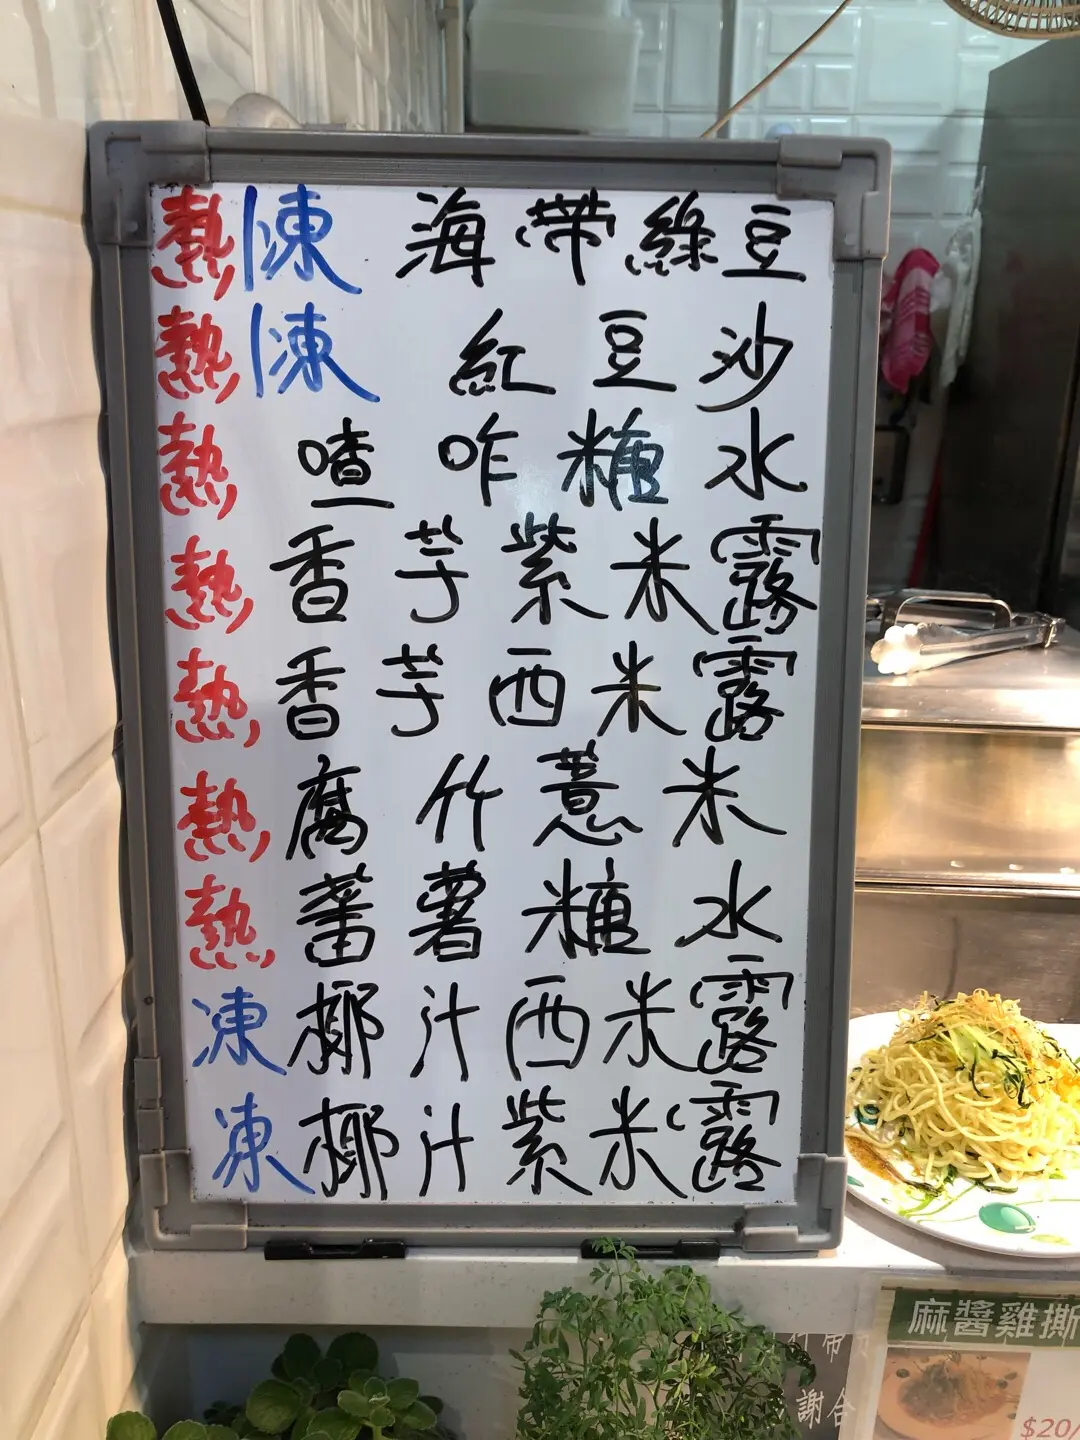 熱凍 海帶綠豆
熱凍 紅豆沙
熱 喳咋糖水
熱 香芋紫米露
熱 香芋西米露
熱 腐竹薏米
熱 蕃薯糖水
凍 椰汁西米露
凍 椰汁紫米露
麻醬雞撕
$20/
謝合